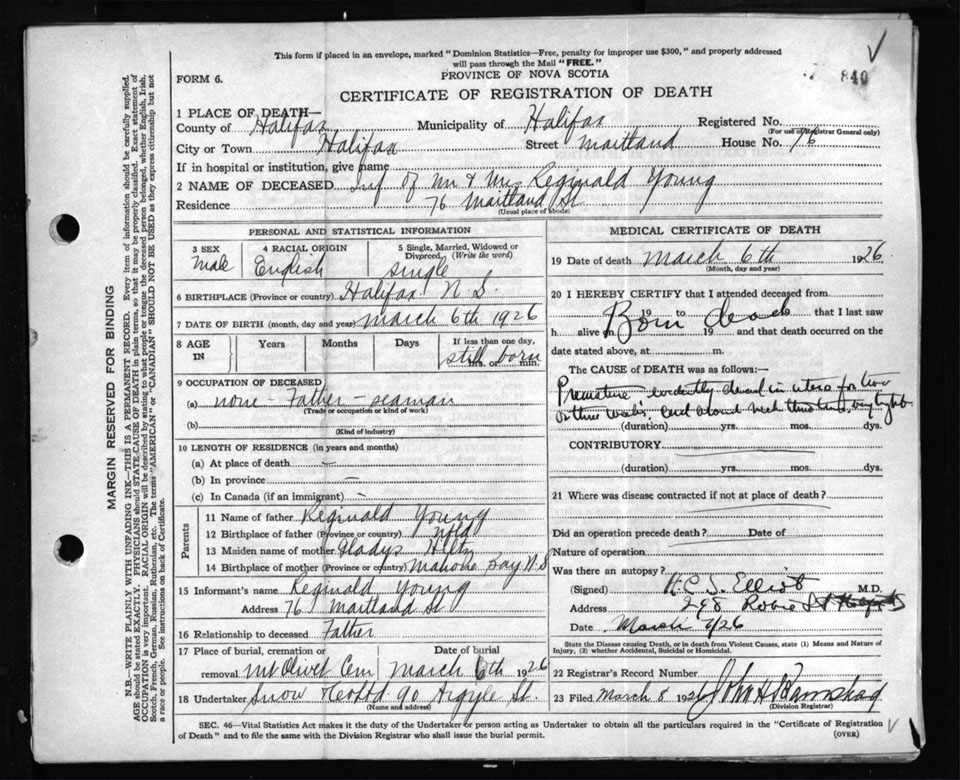 This form if placed in an envelope, marked "Dominion Statistics—Free, penalty for improper use $300," and properly addressed
will pass through the Mail "FREE."
840
FORM 6.
PROVINCE OF NOVA SCOTIA
CERTIFICATE OF REGISTRATION OF DEATH
1 PLACE OF DEATH—
County of Halifax Municipality of Halifax Registered No.
(For use of Registrar General only)
City or Town Halifax Street Maitland House No. 76
If in hospital or institution, give name
2 NAME OF DECEASED Inf of Mr & Mrs Reginald Young
Residence 76 Maitland St
(Usual place of abode)
PERSONAL AND STATISTICAL INFORMATION
3 SEX Male
4 RACIAL ORIGIN English
5 Single, Married, Widowed or Divorced (Write the word) single
6 BIRTHPLACE (Province or country) Halifax N S.
7 DATE OF BIRTH (month, day and year) March 6th 1926
8 AGE IN Years Months Days If less than one day, hrs. or min.
still born
9 OCCUPATION OF DECEASED
(a) none - Father - seaman
(Trade or occupation or kind of work)
(b)
(Kind of industry)
10 LENGTH OF RESIDENCE (in years and months)
(a) At place of death
(b) In province
(c) In Canada (if an immigrant)
Parents
11 Name of father Reginald Young
12 Birthplace of father (Province or country) Nfld
13 Maiden name of mother Gladys
14 Birthplace of mother (Province or country) Mahone Bay N S
15 Informant's name Reginald Young
Address 76 Maitland St.
16 Relationship to deceased Father
17 Place of burial, cremation or removal Date of burial
Mt Olivet Cem March 6th 1926
18 Undertaker Snow & Co Ltd 90 Argyle St.
(Name and address)
MEDICAL CERTIFICATE OF DEATH
19 Date of death March 6th 1926
(Month, day and year)
20 I HEREBY CERTIFY that I attended deceased from
19 to that I last saw
h alive in 19 and that death occurred on the
Born dead
date stated above, at m.
The CAUSE of DEATH was as follows:—
Premature - evidently dead in utero for two
or three weeks. Cord around neck three times, very tight.
(duration) yrs. mos. dys.
CONTRIBUTORY
(duration) yrs. mos. dys.
21 Where was disease contracted if not at place of death?
Did an operation precede death? Date of
Nature of operation
Was there an autopsy?
(Signed) H.C.S. Elliot M.D.
Address 298 Robie St Halifax
Date March 7/26
State the Disease causing Death, or in death from Violent Causes, state (1) Means and Nature of
Injury, (2) whether Accidental, Suicidal or Homicidal.
22 Registrar's Record Number
23 Filed March 8 1926 John H
(Division Registrar)
SEC. 46—Vital Statistics Act makes it the duty of the Undertaker or person acting as Undertaker to obtain all the particulars required in the "Certificate of Registration
of Death" and to file the same with the Division Registrar who shall issue the burial permit.
(OVER)
MARGIN RESERVED FOR BINDING
N.B.—WRITE PLAINLY WITH UNFADING INK—THIS IS A PERMANENT RECORD. Every item of information should be carefully supplied.
AGE should be stated EXACTLY. PHYSICIANS should STATE CAUSE OF DEATH in plain terms, so that it may be properly classified. Exact statement of
OCCUPATION is very important. RACIAL ORIGIN will be described by stating to what people or tongue the deceased person belonged, whether English, Irish,
Scotch, French, German, Russian, Ruthenian, etc. The terms "AMERICAN" or "CANADIAN" SHOULD NOT BE USED as they express citizenship but not
a race or people. See instructions on back of Certificate.